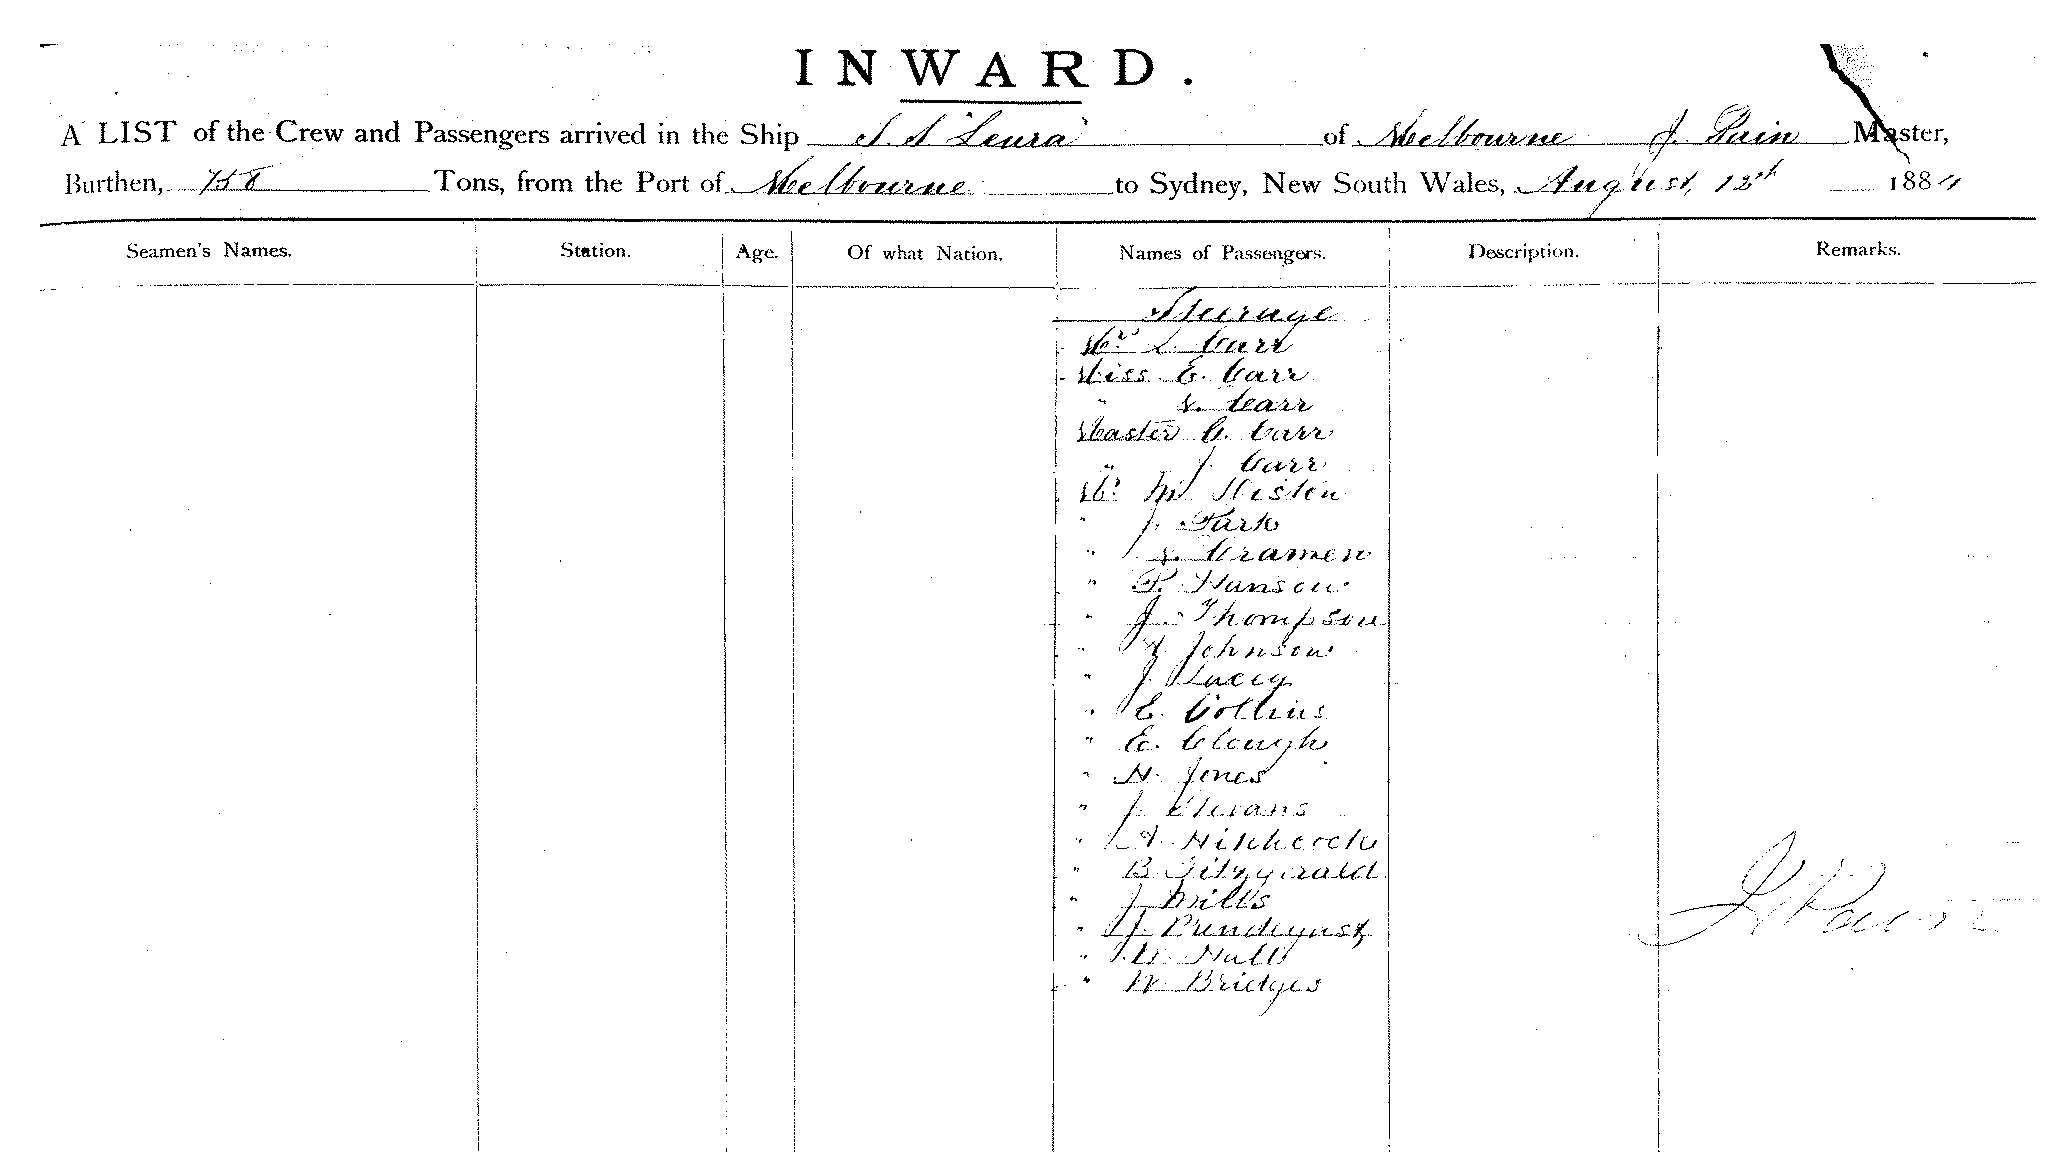 INWARD.
A LIST of the Crew and Passengers arrived in the Ship S.S "Leura" of Melbourne J. Pain Master,
Burthen, 758 Tons, from the Port of Melbourne to Sydney, New South Wales, August, 12th 1884
Seamen's Names. Station. Age. Of what Nation. Names of Passengers. Description. Remarks.
Steerage
Mrs L. Carr
Miss E. Carr
" Carr
Master C. Carr
" J. Carr
Mr M Histen
" J. Park
" Cramen
" P. Hanson
" J. Thompson
" Johnson
" J. Lucey
" E. Collins
" E. Clough
" H. Jones
" J. Stevans
" A. Hitchcock
" B. Fitzgerald
" J. Mills
" J.
" Hall
" W. Bridges
J Pain